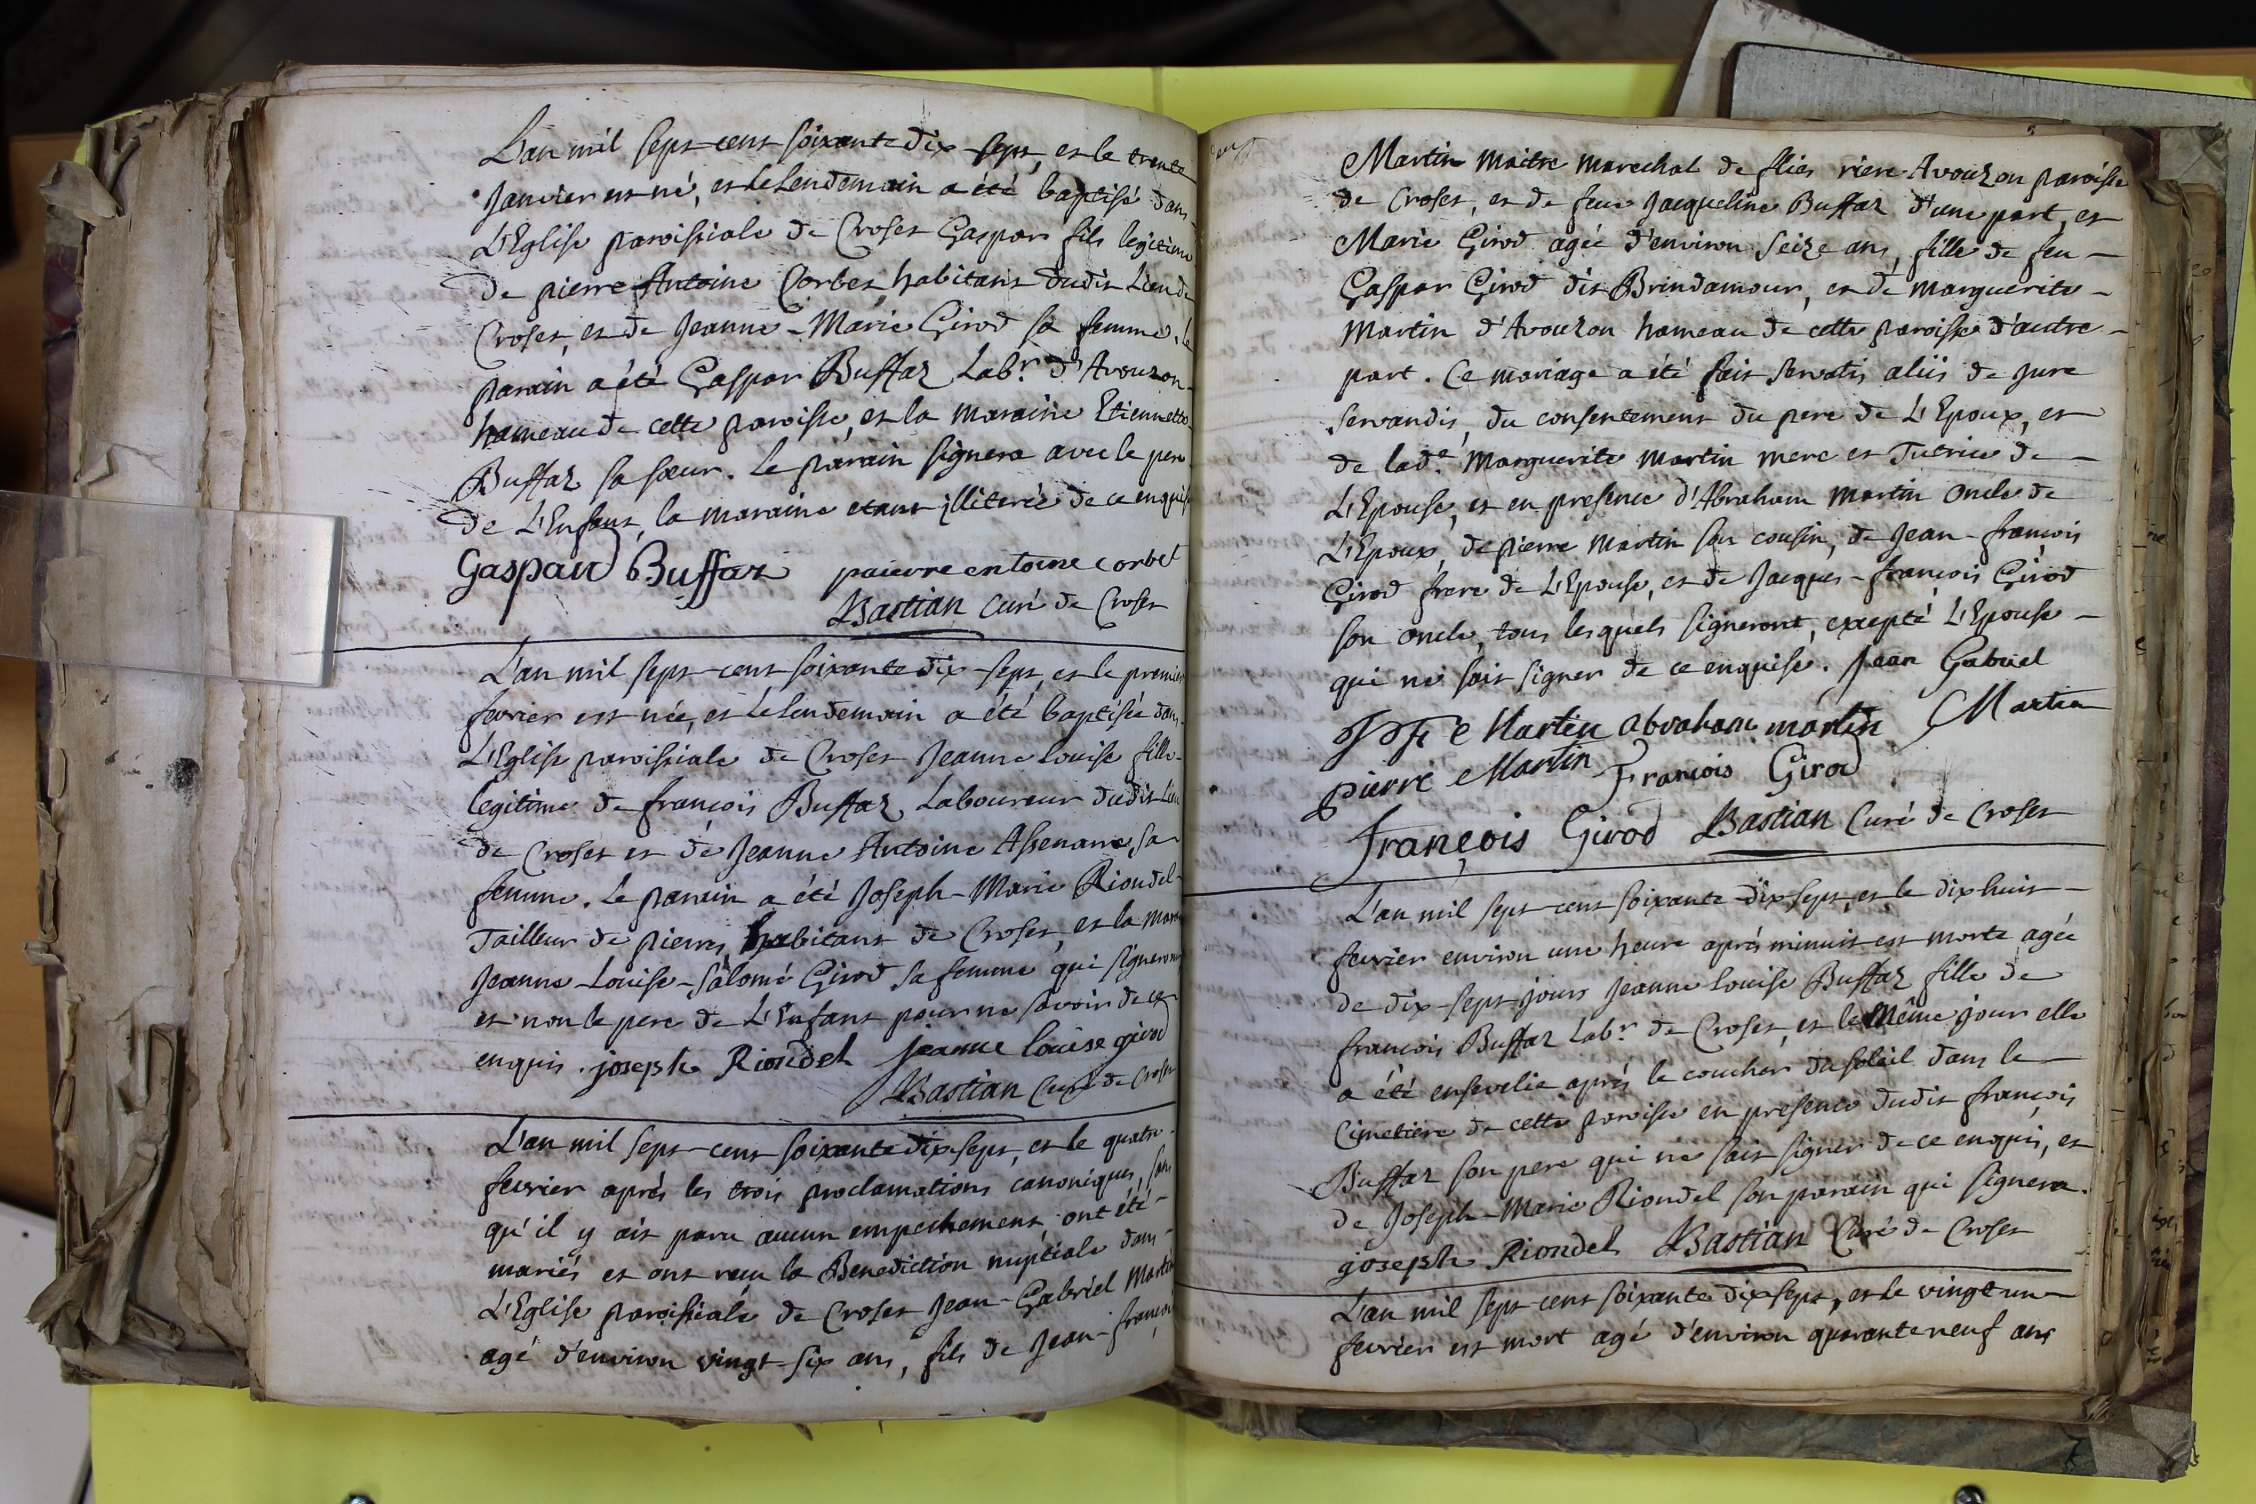 L'an mil sept cent soixante dix sept, et le trente
Janvier est né, et le lendemain a été baptisé dans
L'Eglise paroissiale de Croset Gaspar fils legitime
de pierre Antoine Corbet habitant dudit Lieu de
Croset, et de Jeanne-Marie Girod sa femme. le
parain a été Gaspar Buffaz Labr. d'Avouzon
hameau de cette paroisse, et la maraine Etiennette
Buffaz sa sœur. Le parain signera avec le pere
de L'Enfant, la maraine etant illiterée de ce enquise
Gaspard Buffaz paierre entoine corbet
Bastian Curé de Croset
L'an mil sept cent soixante dix sept, et le premier
fevrier est née, et le lendemain a été baptisée dans
L'Eglise paroissiale de Croset Jeanne Louise fille
legitime de françois Buffaz Laboureur dudit Lieu
de Croset et de Jeanne Antoine sa
femme. Le parain a été Joseph-Marie Riondel
Tailleur de pierres, habitant de Croset, et la mar
Jeanne-Louise-Salomé Girod sa femme qui signeront
et non le pere de L'Enfant pour ne savoir de ce
enquis. joseph Riondel jeanne louise girod
Bastian Curé de Croset
L'an mil sept cent soixante dix sept, et le quatre
fevrier après les trois proclamations canoniques, sans
qu'il y ait paru aucun empechement ont été
mariés et ont reçu la Benediction nuptiale dans
L'Eglise paroissiale de Croset Jean-Gabriel Martin
agé d'environ vingt-six ans, fils de Jean-françois
Martin maitre marechal de flies riere Avouzon paroisse
de Croset, et de feue Jacqueline Buffaz d'une part, et
Marie Girod agée d'environ seize ans, fille de feu
Gaspar Girod dit Brindamour, et de marguerite
Martin d'Avouzon hameau de cette paroisse d'autre
part. Ce mariage a été fait servatis aliis de jure
servandis, du consentement du pere de L'Epoux, et
de lade. Marguerite Martin mere et Tutrice de
L'Epouse, et en presence d'Abraham Martin Oncle de
L'Epoux, de pierre Martin son cousin, de Jean-françois
Girod frere de L'Epouse, et de Jacques-françois Girod
son oncle, tous lesquels signeront, excepté L'Epouse
qui ne sait signer de ce enquise. Jean Gabriel
Martin abraham martin Martin
pierre Martin François Girod
François Girod Bastian Curé de Croset
L'an mil sept cent soixante dix sept, et le dix huit
fevrier environ une heure après minuit est morte agée
de dix-sept jours Jeanne Louise Buffaz fille de
françois Buffaz Labr. de Croset, et le même jour elle
a été ensevelie après le coucher du soleil dans le
Cimetiere de cette paroisse en presence dudit françois
Buffaz son pere qui ne sait signer de ce enquis, et
de Joseph-Marie Riondel son parain qui signera.
joseph Riondel Bastian Curé de Croset
L'an mil sept cent soixante dix sept, et le vingt un
fevrier est mort agé d'environ quarante neuf ans